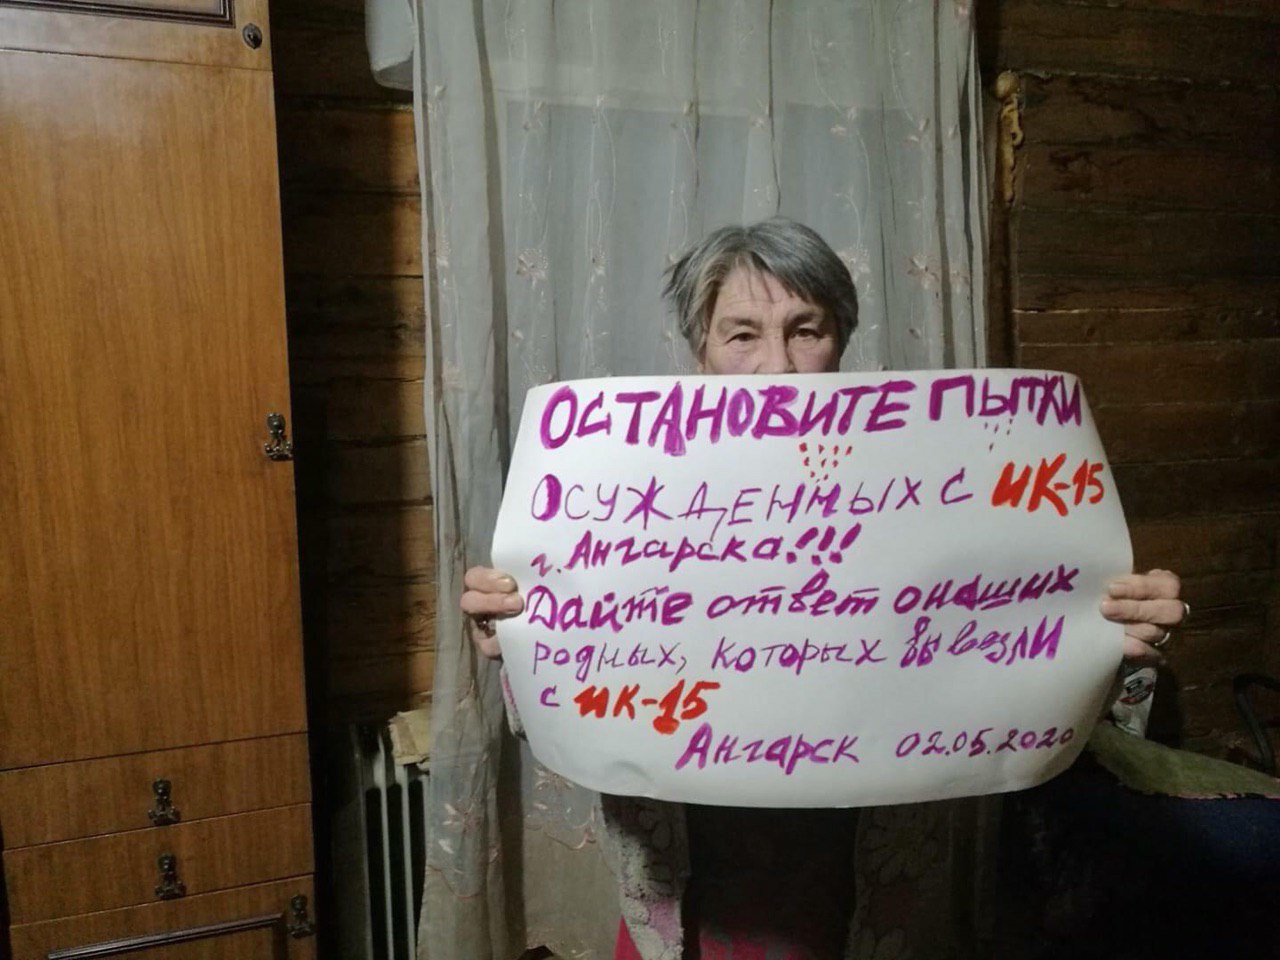 ОСТАНОВИТЕ ПЫТКИ
ОСУЖДЕННЫХ С ИК-15
г. Ангарска!!!
Дайте ответ о наших
родных, которых вывезли
с ИК-15
Ангарск 02.05.2020